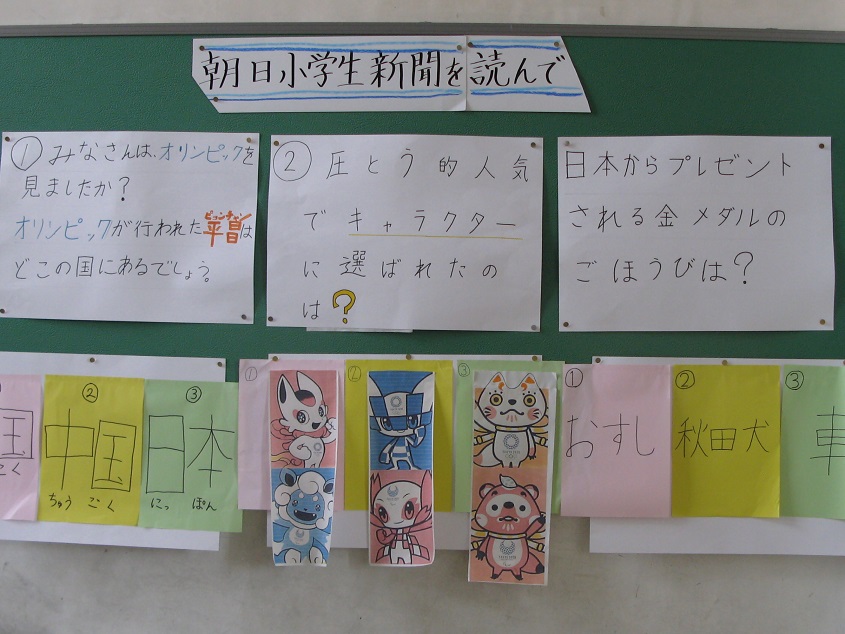 朝日小学生新聞を読んで
① みなさんは、オリンピックを
見ましたか?
オリンピックが行われた平昌は
ピョンチャン
どこの国にあるでしょう。
② 圧とう的人気
で キャラクター
に選ばれたの
は?
日本からプレゼント
される金メダルの
ごほうびは?
国
こく
②
中国
ちゅう ごく
③
日本
にっ ぽん
①
②
③
①
おすし
②
秋田犬
③
車